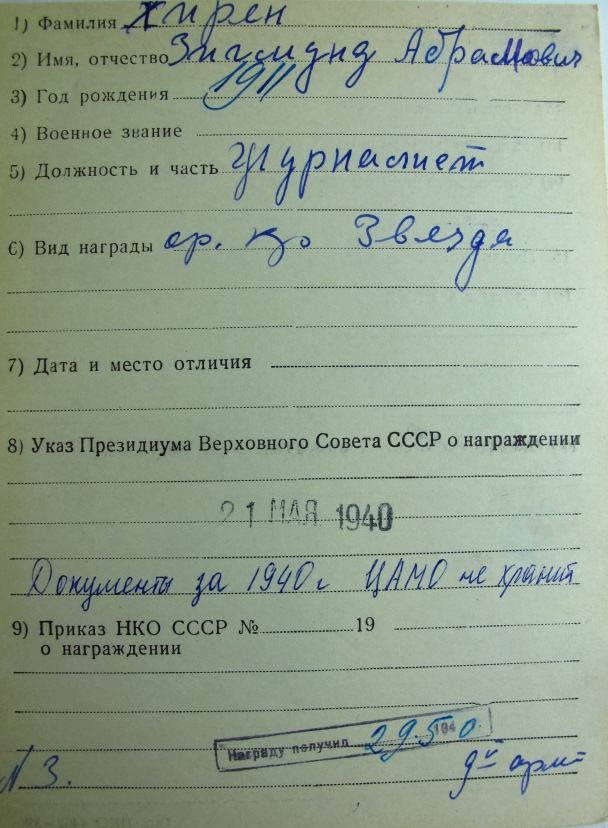 1) Фамилия Хирен
2) Имя, отчество Зигмунд Абрамович
3) Год рождения 1911
4) Военное звание
5) Должность и часть журналист
6) Вид награды ор. Кр Звезда
7) Дата и место отличия
8) Указ Президиума Верховного Совета СССР о награждении
21 МАЯ 1940
Документы за 1940 г ЦАМО не хранит
9) Приказ НКО СССР № 19
о награждении
Награду получил 29.5 1940.
N 3. 9й арм